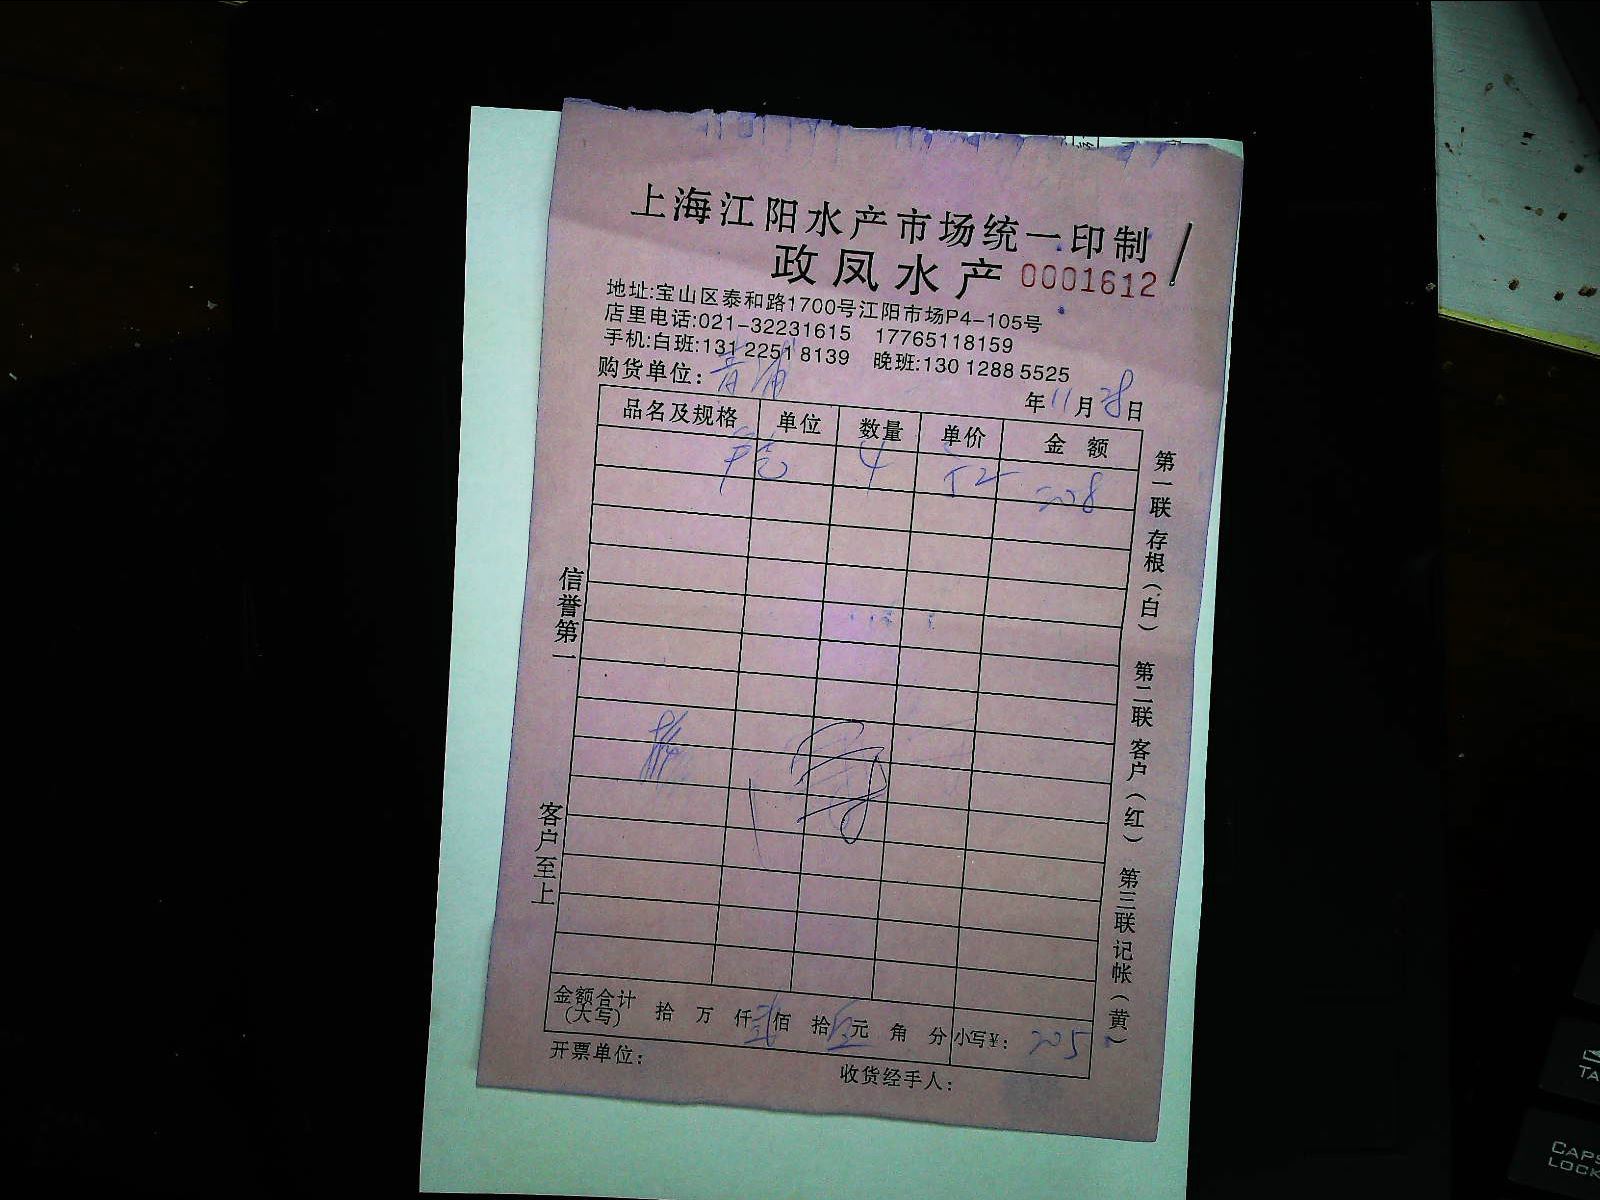 上海江阳水产市场统一印制
政凤水产 0001612
地址:宝山区泰和路1700号江阳市场P4-105号
店里电话:021-32231615 17765118159
手机:白班:131 2251 8139 晚班:130 1288 5525
购货单位: 青浦 年11月28日
品名及规格 单位 数量 单价 金额
4 52 208
金额合计(大写) 拾 万 仟贰佰 拾伍元 角 分 小写¥: 205
开票单位: 收货经手人:
信誉第一
客户至上
第一联 存根(白) 第二联 客户(红) 第三联 记帐(黄)
CAPS
LOCK